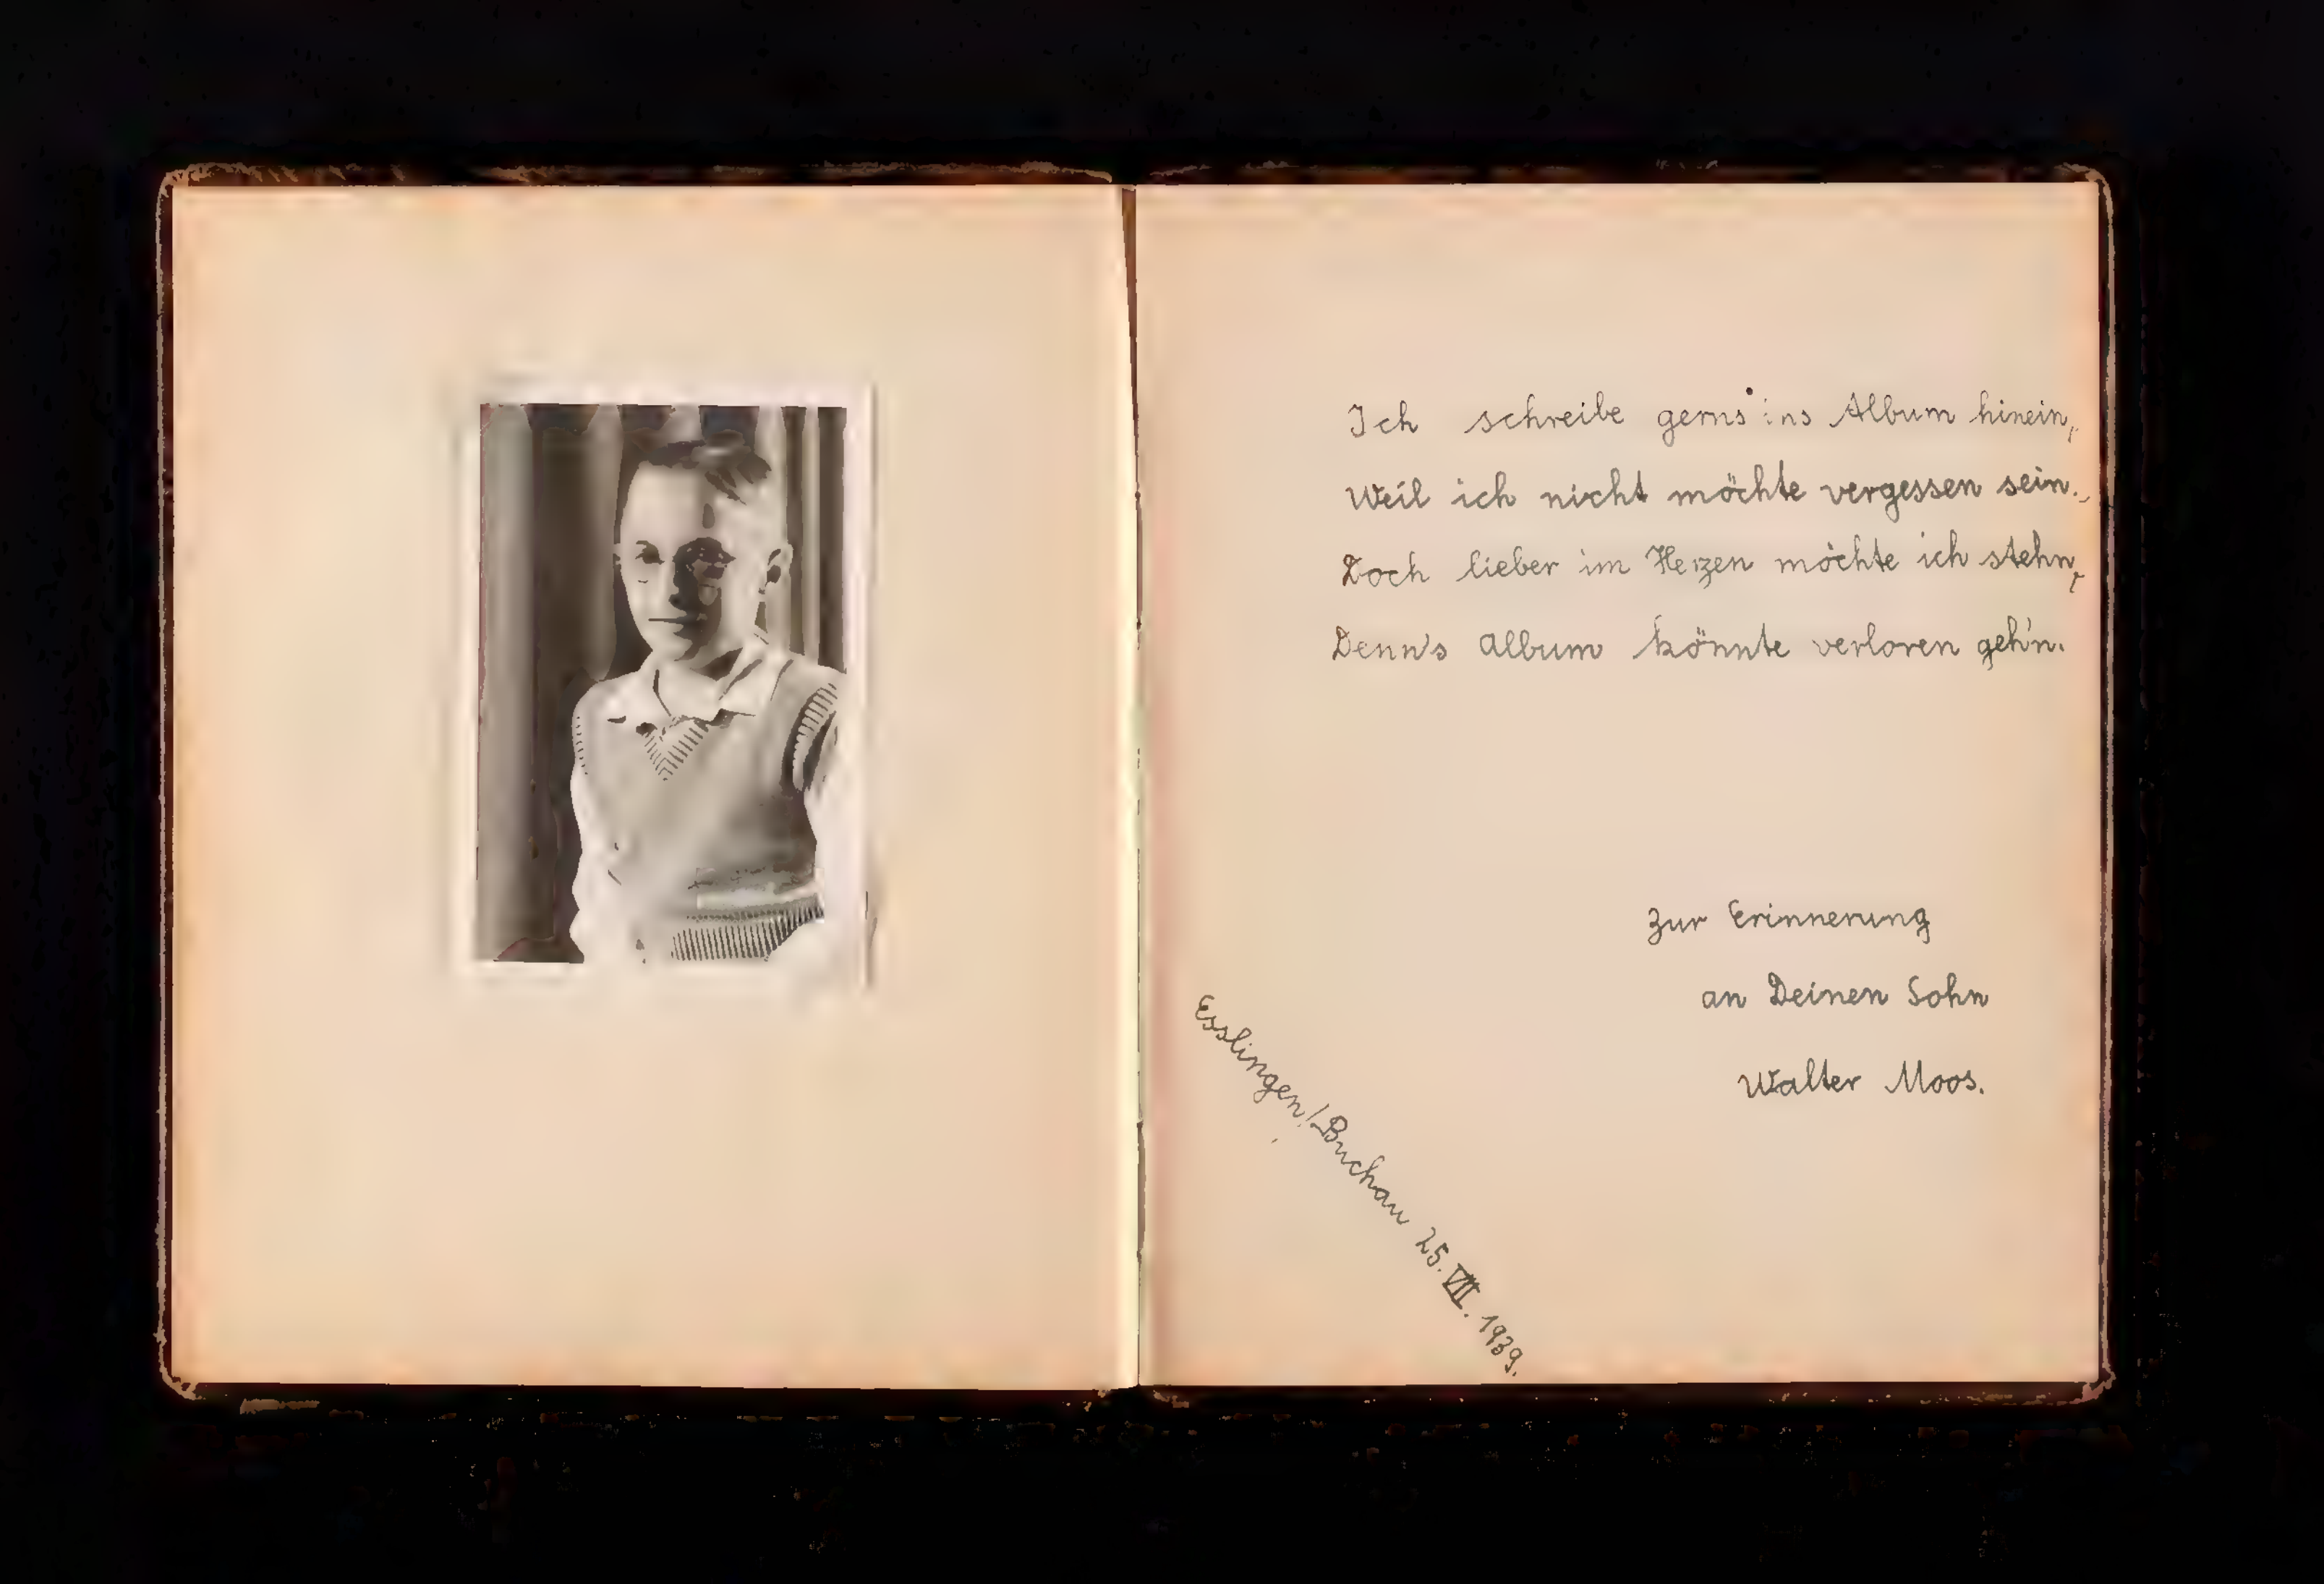 Ich schreibe gerns ins Album hinein,
Weil ich nicht möchte vergessen sein.,
Doch lieber im Herzen möchte ich stehn,
Denn's Album könnte verloren geh'n.
Zur Erinnerung
an Deinen Sohn
Walter Moos.
Esslingen/Buchau 25. VII. 1939.